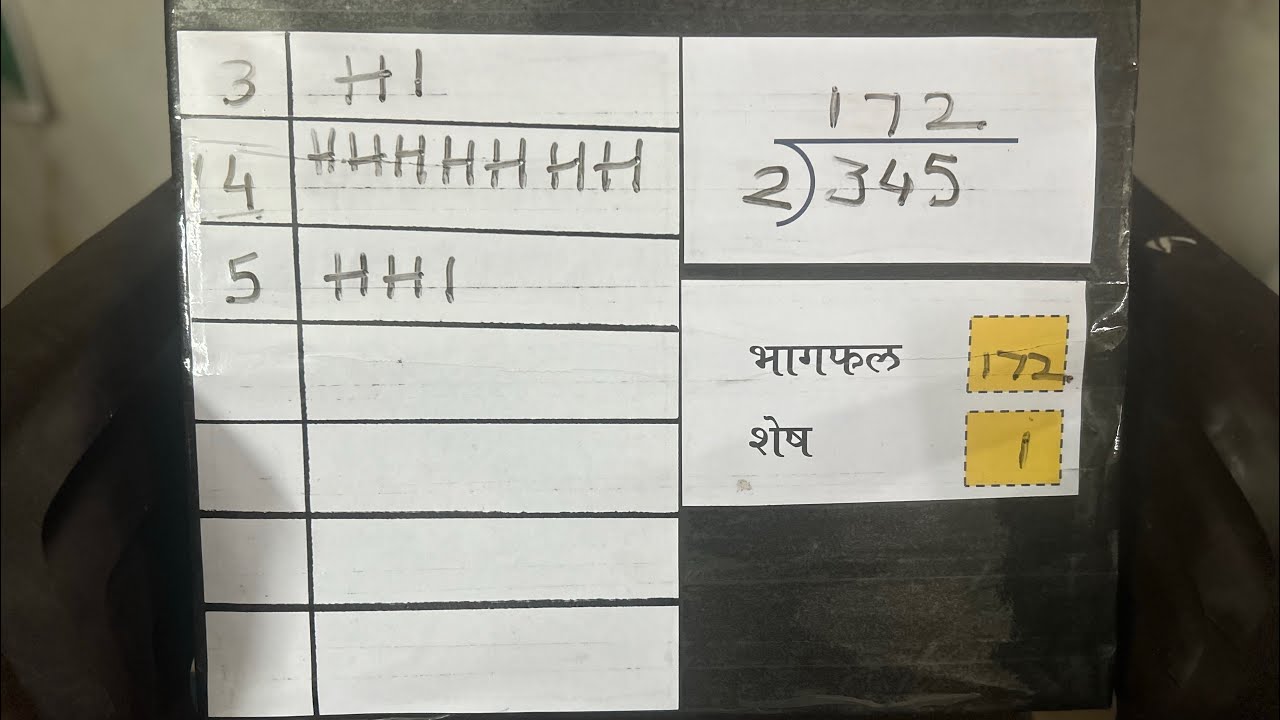 3
14
5
172
2)345
भागफल 172
शेष 1